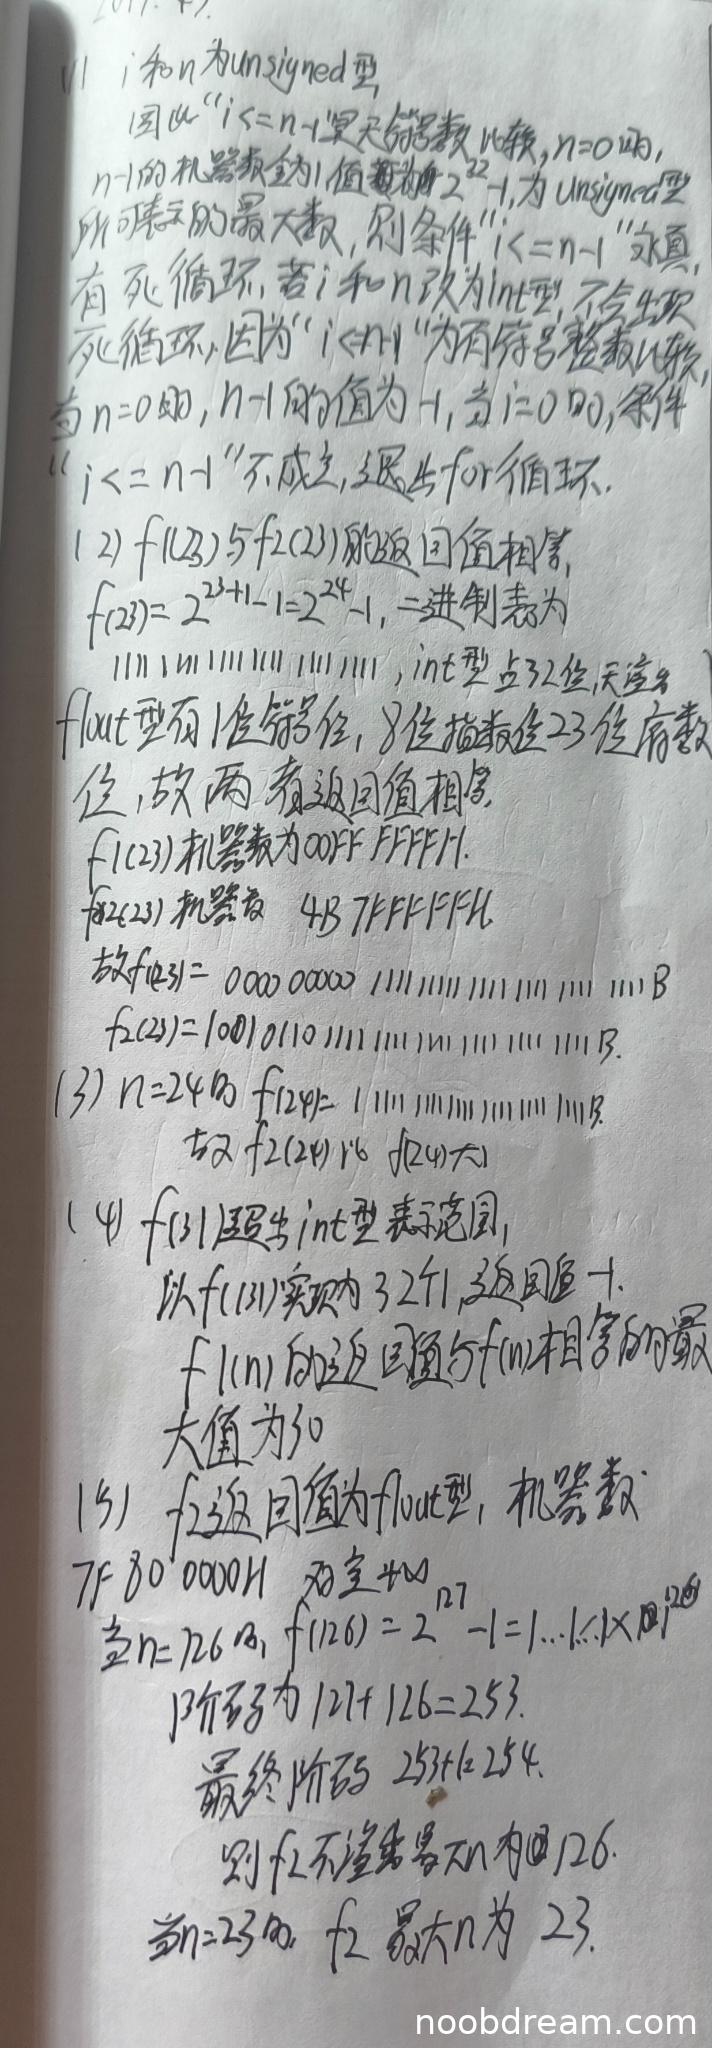 (1) i和n为unsigned型,
因此"i<=n-1"是无符号数比较,n=0时,
n-1的机器数全为1值 2^32-1,为unsigned型
所可表示的最大数,则条件"i<=n-1"永真,
有死循环,若i和n改为int型,不会出现
死循环,因为"i<=n-1"为有符号整数比较,
当n=0时,n-1的值为-1,当i=0时,条件
"i<=n-1"不成立,退出for循环.
(2) f1(23)与f2(23)的返回值相等,
f(23)=2^23+1-1=2^24-1,二进制表为
1111 1111 1111 1111 1111 1111,int型占32位,无溢出
float型有1位符号位,8位指数位23位底数
位,故两者返回值相等.
f1(23)机器数为00FF FFFFH.
f2(23)机器数 4B7FFFFFH.
故f1(23)= 0000 0000 1111 1111 1111 1111 1111 1111B
f2(23)=
(3) n=24时 f(24)= 1 1111 1111 1111 1111 1111 1111B.
故f2(24)比f(24)大1
(4) f(31)超出int型表示范围,
以f1(31)实现为32个1,返回值-1.
f1(n)的返回值与f(n)相等的最
大值为30
(5) f2返回值为float型,机器数
7F80 0000H
当n=126时,f(126)=2^127-1=1...1
阶码为127+126=253.
最终阶码 253+1=254.
则f2不溢出最大n为126.
当n=23时, f2最大n为 23.
noobdream.com